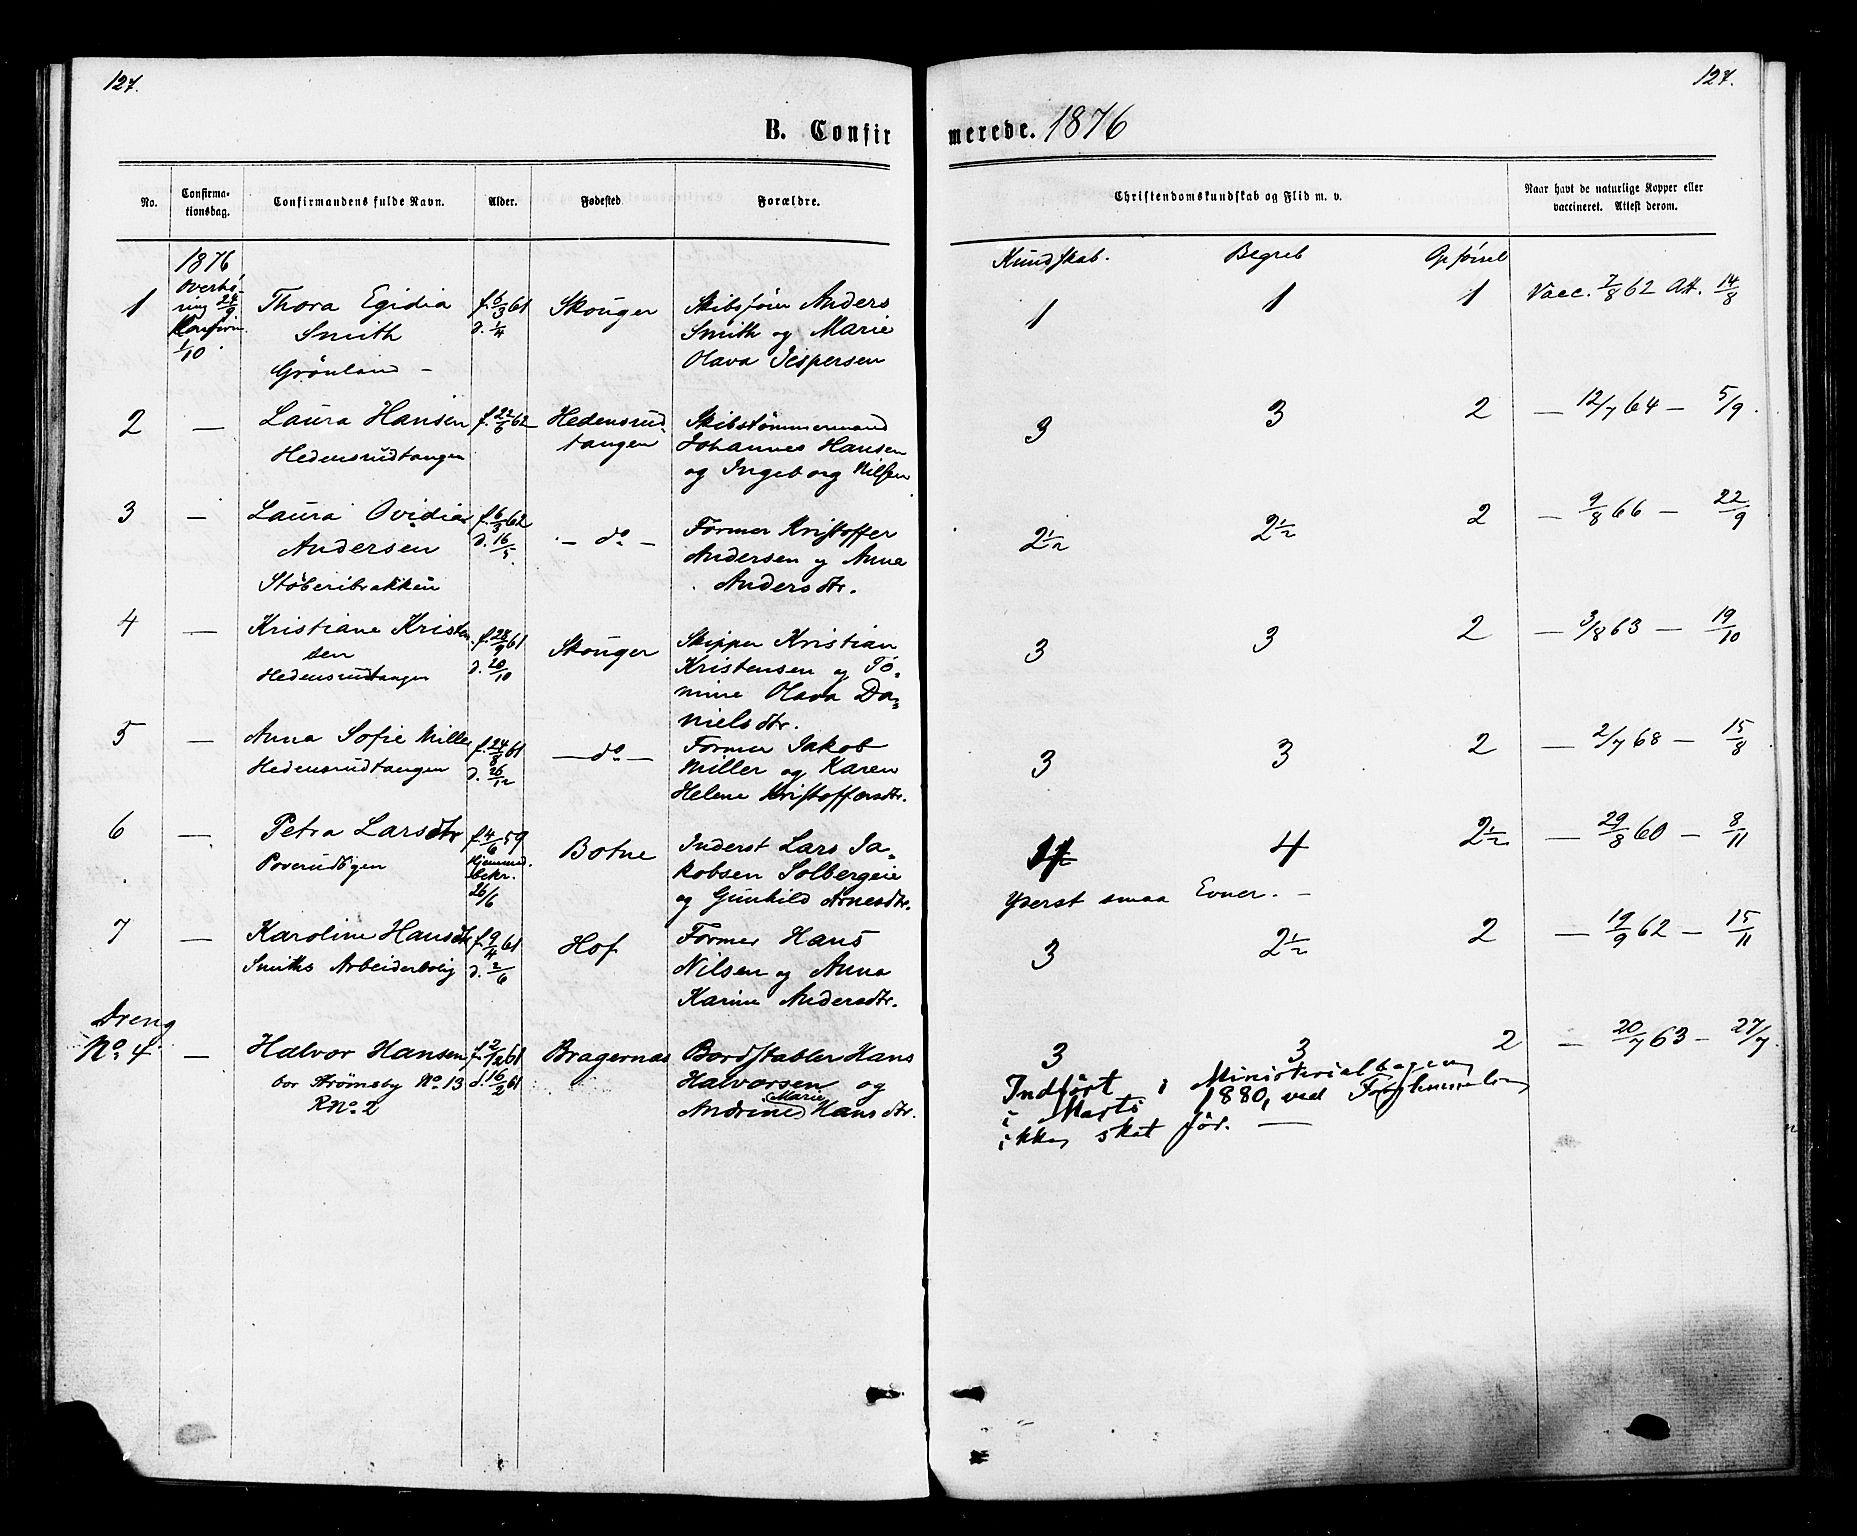 127.
127.
B. Confirmerede. 1876
No.
Confirmationsdag.
Confirmandens fulde Navn.
Alder.
Fødested
Forældre.
Christendomskundskab og Flid m. v.
Naar havt de naturlige Kopper eller
vaccineret. Attest derom.
Kundskab. Begreb Opførsel
1876
Overhø-
ring 24/9
Konfirm.
1/10.
1 Thora Egidia f. 6/3 61 Skouger Skibsfører Anders 1 1 1 Vacc. 7/8 62 Att. 14/8
Smith d. 1/4 Smith og Marie
Grønland – Olava Jespersen
2 — Laura Hansen f. 22/6 62 Hedensrud- Skibstømmermand 3 3 2 — 12/7 64 — 5/9.
Hedensrudtangen tangen Johannes Hansen
og Ingeborg Nilsen
3 — Laura Ovidia f. 6/3 62 — do — Former Kristoffer 2½ 2½ 2 — 9/8 66 — 22/9
Andersen d. 16/5. Andersen og Anne
Støberibrakken Andersdtr.
4 — Kristiane Kristen f. 28/9 61 Skouger Skipper Kristian 3 3 2 — 3/8 63 — 19/10
sen d. 20/10 Kristensen og
Hedensrudtangen mine Olava Da-
nielsdtr.
5 — Anna Sofie Miller f. 24/8 61 — do — Former Jakob 3 3 2 — 2/7 68 — 15/8
Hedensrudtangen d. 26/12 Miller og Karen
Helene Kristoffersdtr.
6 — Petra Larsdtr f. 4/6 59 Botne Inderst Lars Ja- 4 2½ — 29/8 60 — 8/11
Hjemmed. kobsen Solbergeie
bekr. og Gunhild Arnesdtr. Yderst smaa Evner. –
26/6
7 — Karoline Hansdtr f. 9/4 61 Hof Former Hans 3 2½ 2 — 19/9 62 — 15/11
Smiths Arbeiderbolig d. 2/6 Nilsen og Anna
Karine Andersdtr.
Dreng
No. 4 — Halvor Hansen f. 2/12 61 Bragernæs Bordstabler Hans 3 3 2 — 20/7 63 — 27/7.
bor Strømsby No. 13 d. 16/2 61 Halvorsen og
RNo. 2 Andrine Marie Hansdtr.
Indført i Ministerialbogen
i Marts 1880, ved Forglemmelse
ikke sket før. —